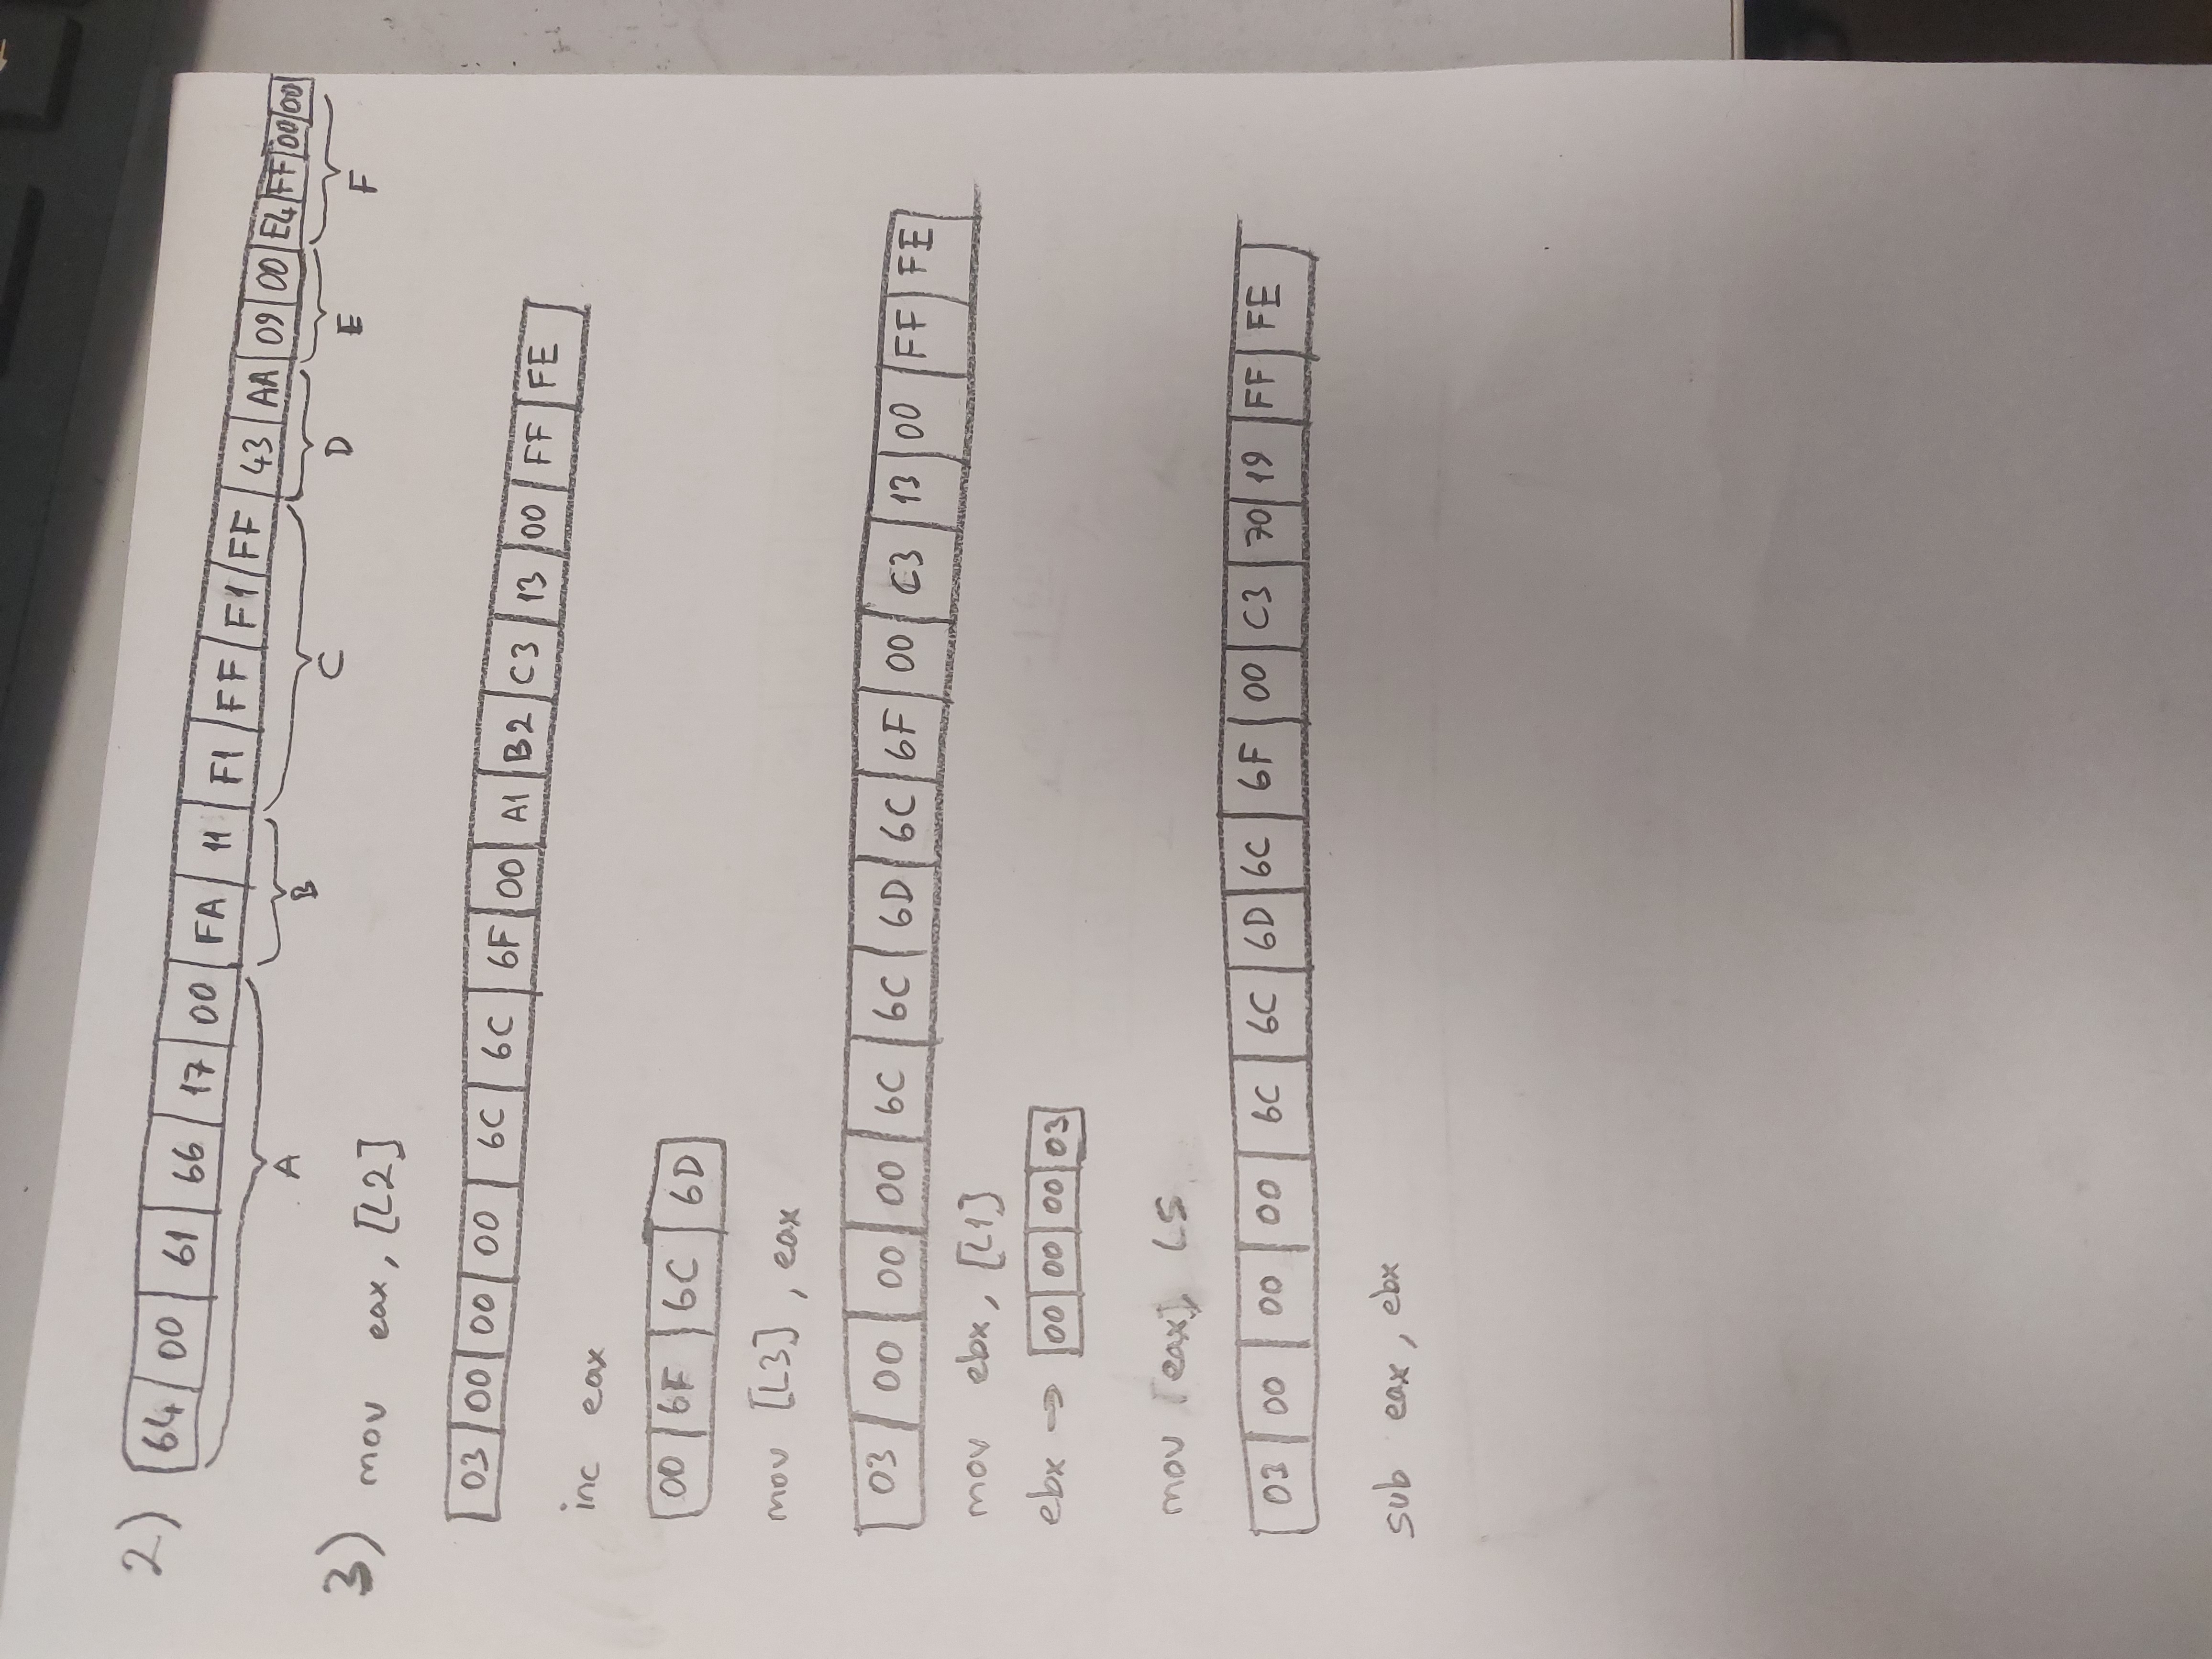 2) 64 00 61 66 17 00 FA 11 F1 FF F1 FF 43 AA 09 00 E4 FF 00 00
A B C D E F
3) mov eax, [L2]
03 00 00 00 6C 6C 6F 00 A1 B2 C3 13 00 FF FE
inc eax
00 6F 6C 6D
mov [L3], eax
03 00 00 00 6C 6C 6D 6C 6F 00 C3 13 00 FF FE
mov ebx, [L1]
ebx ⇒ 00 00 00 03
mov [eax], L5
03 00 00 00 6C 6C 6D 6C 6F 00 C3 70 19 FF FE
sub eax, ebx